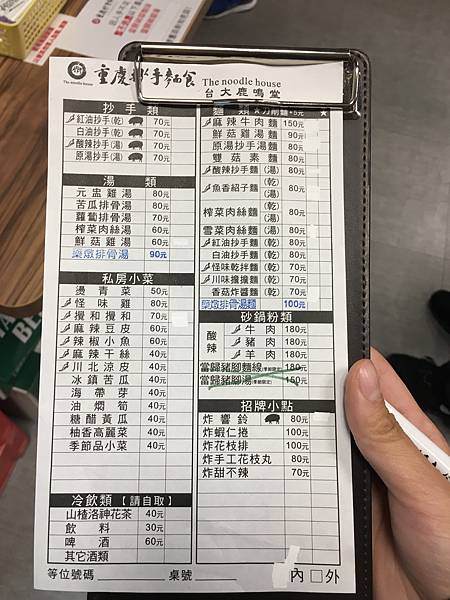 重慶抄手麵食
The noodle house
The noodle house
台大鹿鳴堂
抄手類
紅油抄手(乾) 70元
白油抄手(乾) 70元
酸辣抄手(湯) 70元
原湯抄手(湯) 70元
湯類
元盅雞湯 80元
苦瓜排骨湯 80元
蘿蔔排骨湯 70元
榨菜肉絲湯 60元
鮮菇雞湯 60元
藥燉排骨湯 90元
私房小菜
燙青菜 50元
怪味雞 80元
攪和攪和 70元
麻辣豆皮 60元
辣椒小魚 60元
麻辣干絲 40元
川北涼皮 40元
冰鎮苦瓜 40元
海帶芽 40元
油燜筍 40元
糖醋黃瓜 40元
柚香高麗菜 40元
季節品小菜 40元
冷飲類【請自取】
山楂洛神花茶 40元
飲料 30元
啤酒 60元
其它酒類
等位號碼
麵類 ★刀削麵+5元 ★
麻辣牛肉麵 150元
鮮菇雞湯麵 90元
原湯抄手湯麵 80元
雙菇素麵 80元
酸辣抄手麵(湯) 80元
魚香紹子麵(乾)(湯) 80元
榨菜肉絲麵(乾)(湯) 80元
雪菜肉絲麵(湯) 80元
紅油抄手麵(乾) 80元
白油抄手麵(乾) 80元
怪味乾拌麵(乾) 70元
川味擔擔麵(乾) 70元
香菇炸醬麵(乾) 70元
藥燉排骨麵 100元
砂鍋粉類
酸辣
牛肉 180元
豬肉 180元
羊肉 180元
當歸豬腳麵線(季節限定) 180元
當歸豬腳湯(季節限定) 150元
招牌小點
炸響鈴 80元
炸蝦仁捲 100元
炸花枝排 100元
炸手工花枝丸 80元
炸甜不辣 70元
桌號
內 □外